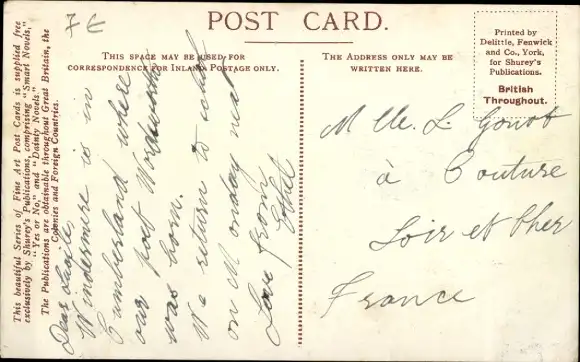 7 €
POST CARD.
THIS SPACE MAY BE USED FOR
CORRESPONDENCE FOR INLAND POSTAGE ONLY.
THE ADDRESS ONLY MAY BE
WRITTEN HERE.
Printed by
Delittle, Fenwick
and Co., York,
for Shurey's
Publications.
British
Throughout.
This beautiful Series of Fine Art Post Cards is supplied free
exclusively by Shurey's Publications, comprising "Smart Novels,"
"Yes or No," and "Dainty Novels."
The Publications are obtainable throughout Great Britain, the
Colonies and Foreign Countries.
Dear
Windermere is in
Cumberland where
our poet Wordsworth
was born.
We return to school
on Monday next
Love from
Ethel
Mlle. L.
à Couture
Loir et Cher
France